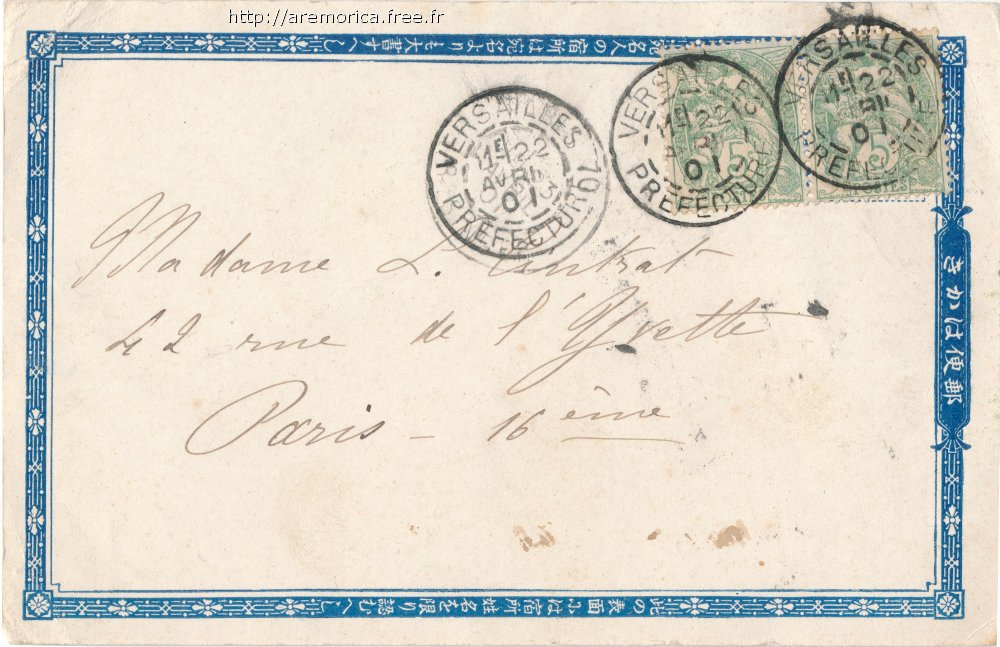 http://aremorica.free.fr
名人の宿所は宛名よりも大書すべし
VERSAILLES
1E 22
AVRIL
01
PREFECTURE
VERSAILLES
1E 22
01
PREFECTURE
VERSAILLES
1E 22
01
PREFECTURE
5
5
郵便はかき
Madame L.
42 rue de l'Yvette
Paris - 16ème
此の表面には宿所姓名を限り認むへし